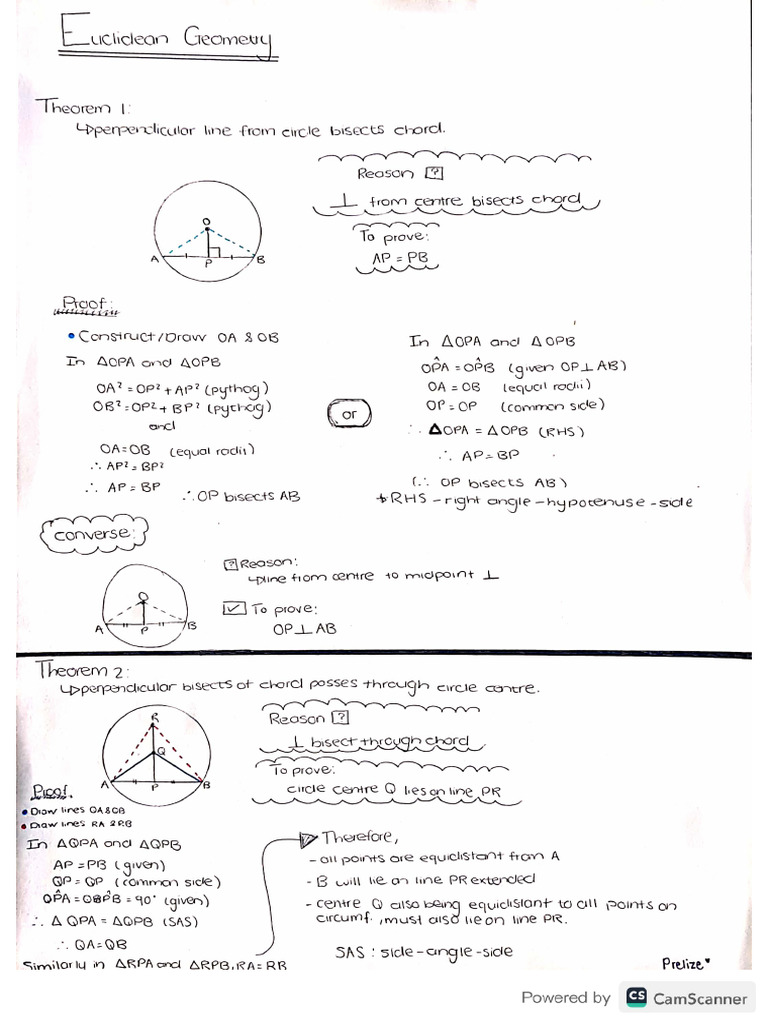 Euclidean Geometry
Theorem 1:
↳perpendicular line from circle bisects chord.
Reason ?
⊥ from centre bisects chord
To prove:
AP = PB
O
A
P
B
Proof:
• Construct/Draw OA & OB
In ΔOPA and ΔOPB
OA² = OP² + AP² (pythog)
OB² = OP² + BP² (pythag)
and
OA = OB (equal radii)
∴ AP² = BP²
∴ AP = BP
∴ OP bisects AB
or
In ΔOPA and ΔOPB
OP̂A = OP̂B (given OP⊥AB)
OA = OB (equal radii)
OP = OP (common side)
∴ ΔOPA = ΔOPB (RHS)
∴ AP = BP
(∴ OP bisects AB)
* RHS - right angle - hypotenuse - side
converse:
O
A
P
B
? Reason:
↳line from centre to midpoint ⊥
✓ To prove:
OP⊥AB
Theorem 2:
↳perpendicular bisects of chord passes through circle centre.
R
Q
A
P
B
Reason ?
⊥ bisect through chord
To prove:
circle centre Q lies on line PR
Proof.
• Draw lines OA & OB
• Draw lines RA & RB
In ΔQPA and ΔQPB
AP = PB (given)
QP = QP (common side)
QP̂A = QP̂B = 90° (given)
∴ Δ QPA = ΔQPB (SAS)
∴ QA = QB
Similarly in ΔRPA and ΔRPB, RA = RB
Therefore,
- all points are equidistant from A
- B will lie on line PR extended
- centre Q also being equidistant to all points on
circumf., must also lie on line PR.
SAS : side-angle-side
Prelize
Powered by CS CamScanner